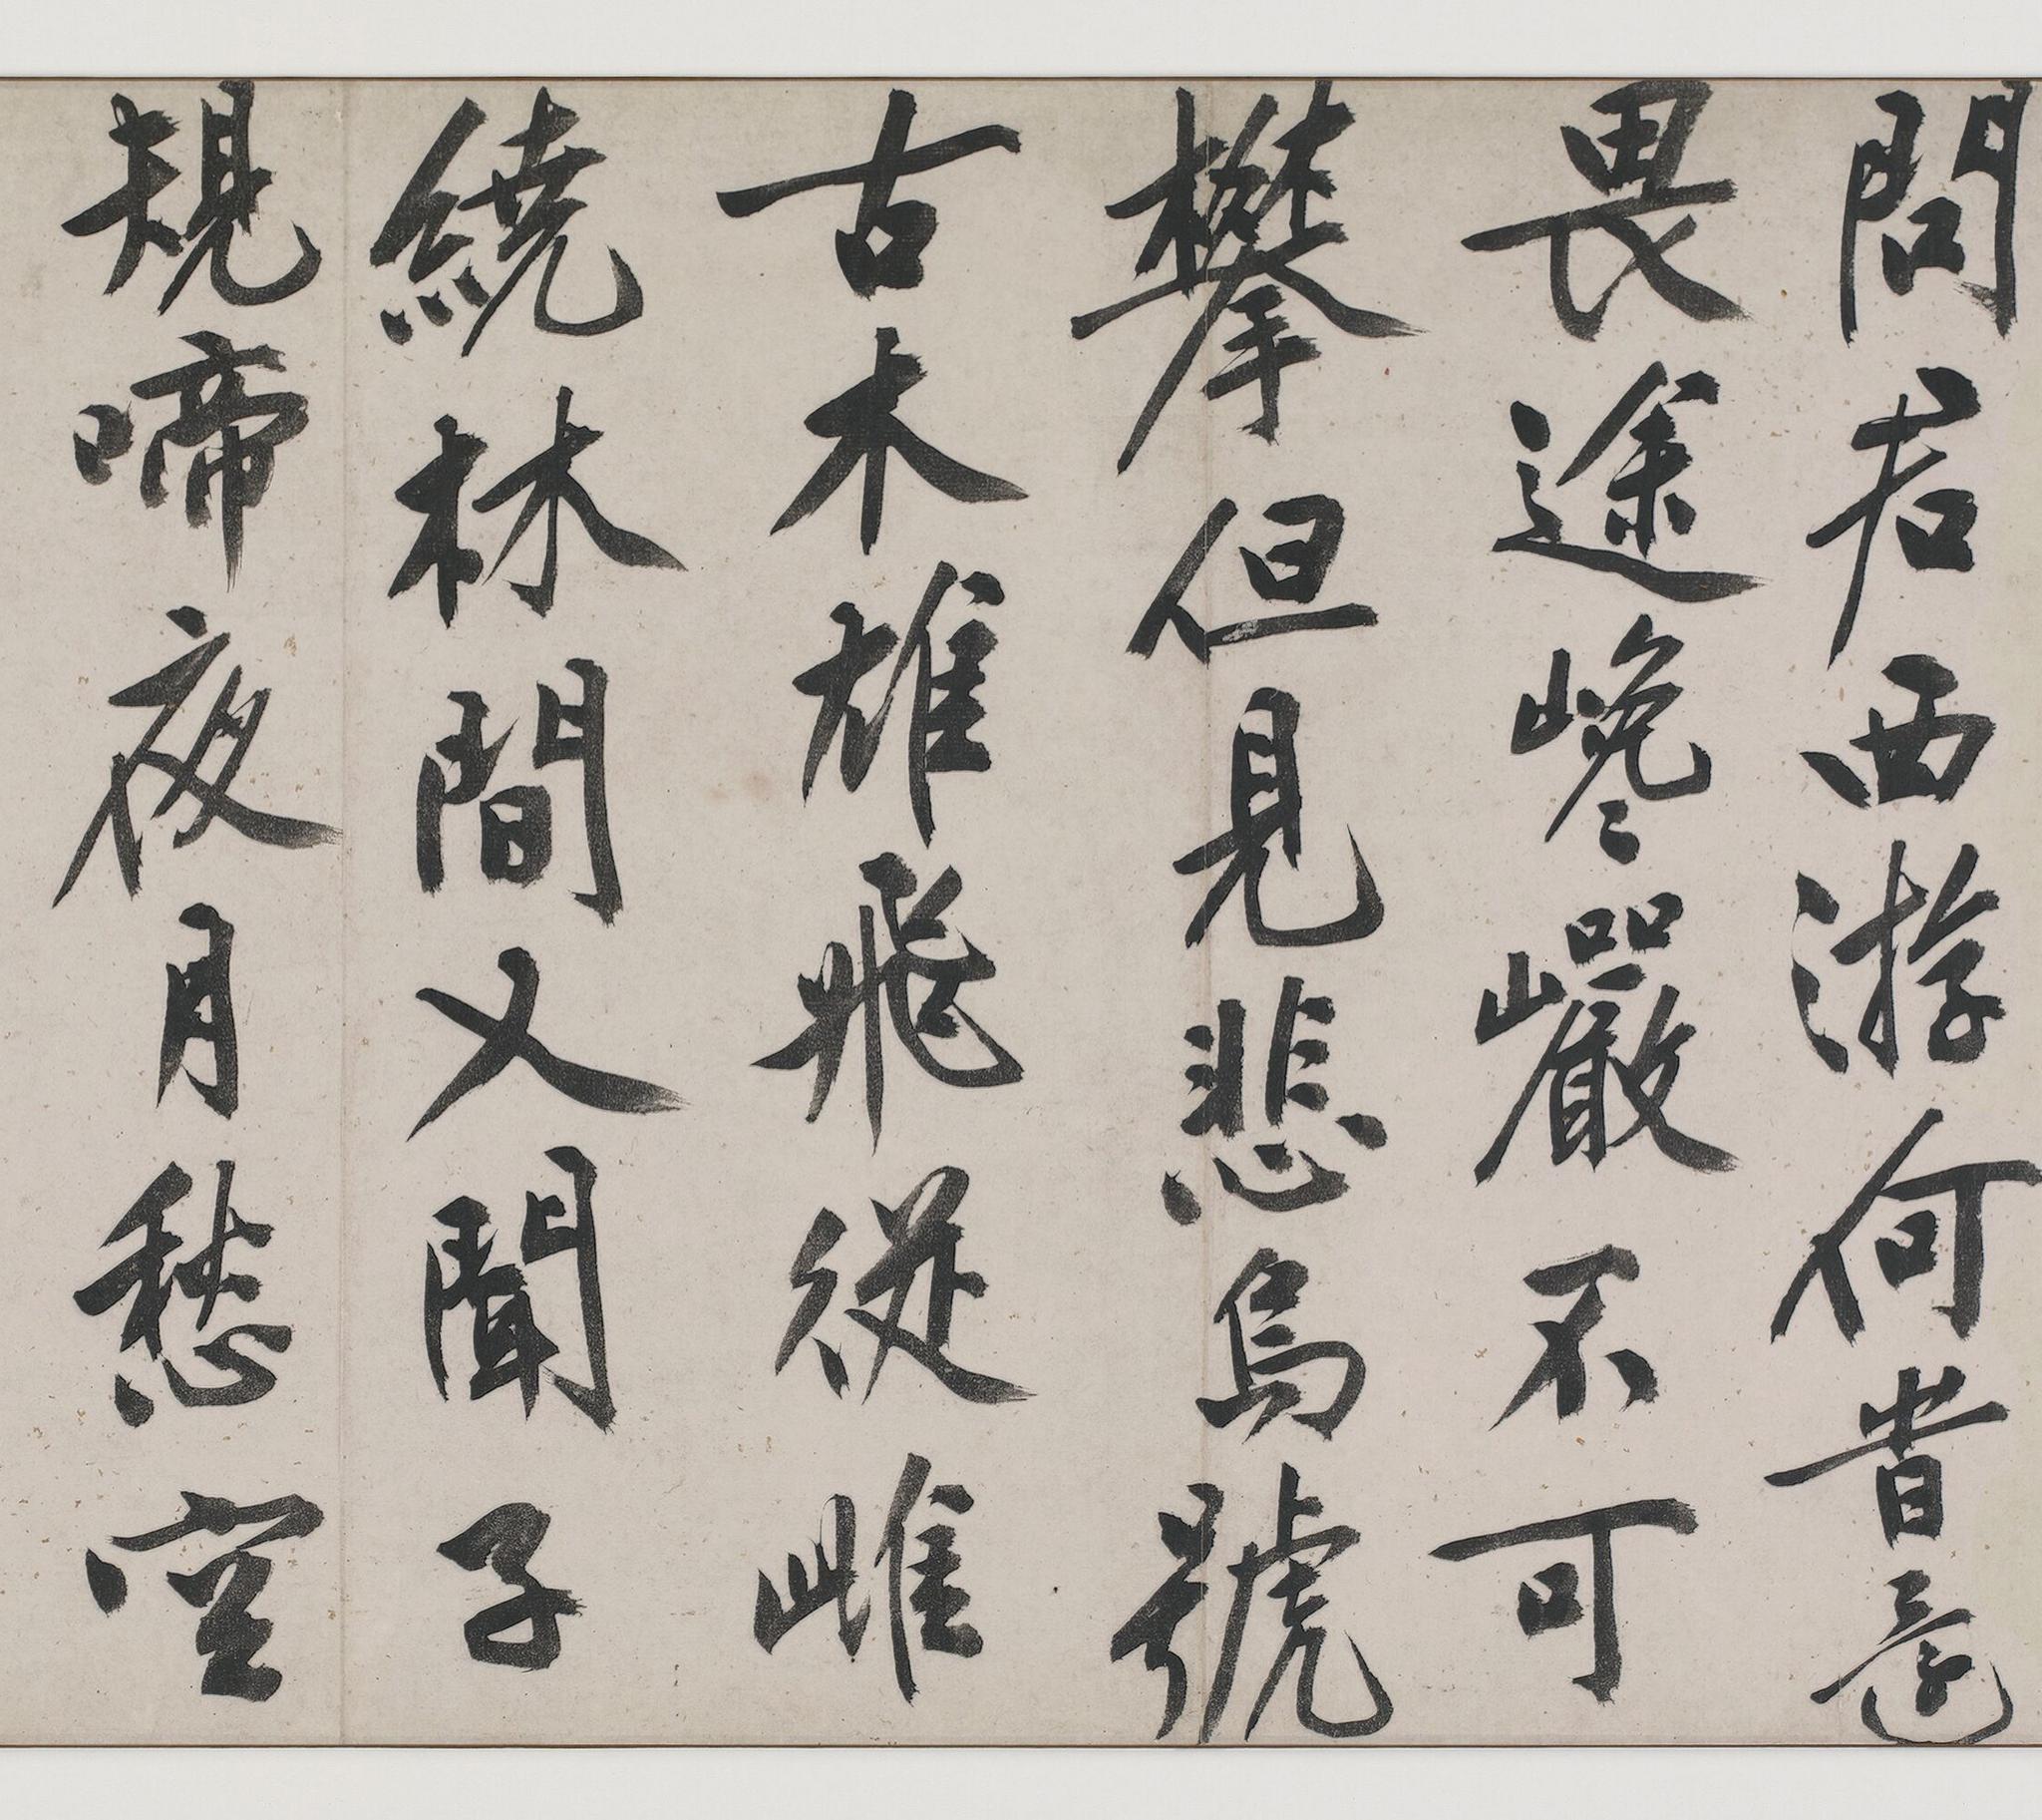 問君西游何旹還
畏途巉巗不可
攀但見悲鳥號
古木雄飛從雌
繞林間又聞子
規啼夜月愁空